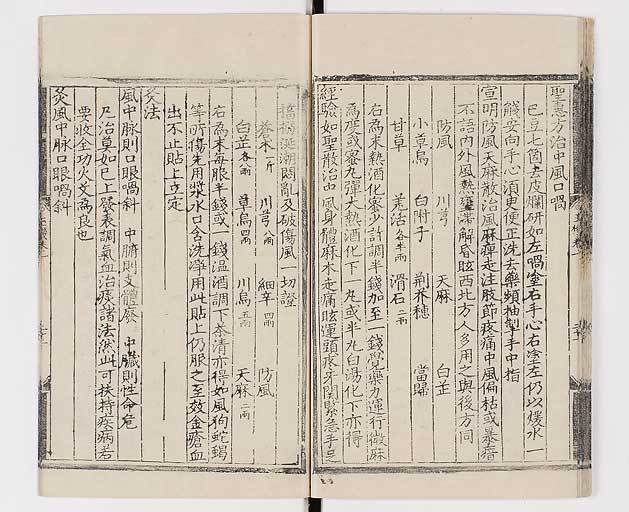 聖惠方治中風口喎
巴豆七箇去皮爛研如左喎塗右手心右塗左仍以煖水一
餞安向手心須臾便正洗去藥頻抽掣手中指
宣明防風天麻散治風麻痺走注肢節疼痛中風偏枯或暴瘖
不語內外風熱壅滯解昏眩西北方人多用之與後方同
防風 川芎 天麻 白芷
小草烏 白附子 荊芥穗 當歸
甘草 羌活各半兩 滑石二兩
右為末熱酒化蜜少許調半錢加至一錢覺藥力運行微麻
為度或蜜丸彈大熱酒化下一丸或半丸白湯化下亦得
經驗如聖散治中風身體麻木走痛眩運頭疼牙關緊急手足
搐搦涎潮悶亂及破傷風一切證
蒼朮一斤 川芎八兩 細辛四兩 防風
白芷各兩 草烏四兩 川烏五兩 天麻二兩
右為末每服半錢或一錢溫酒調下茶清亦得如風狗蛇蝎
等所傷先用漿水口含洗淨用此貼上仍服之至效金瘡血
出不止貼上立定
灸法
風中脉則口眼喎斜 中腑則支體廢 中臟則性命危
凡治莫如已上發表調氣血治痰諸法然此可扶持疾病若
要收全功火艾為良也
灸風中脉口眼喎斜